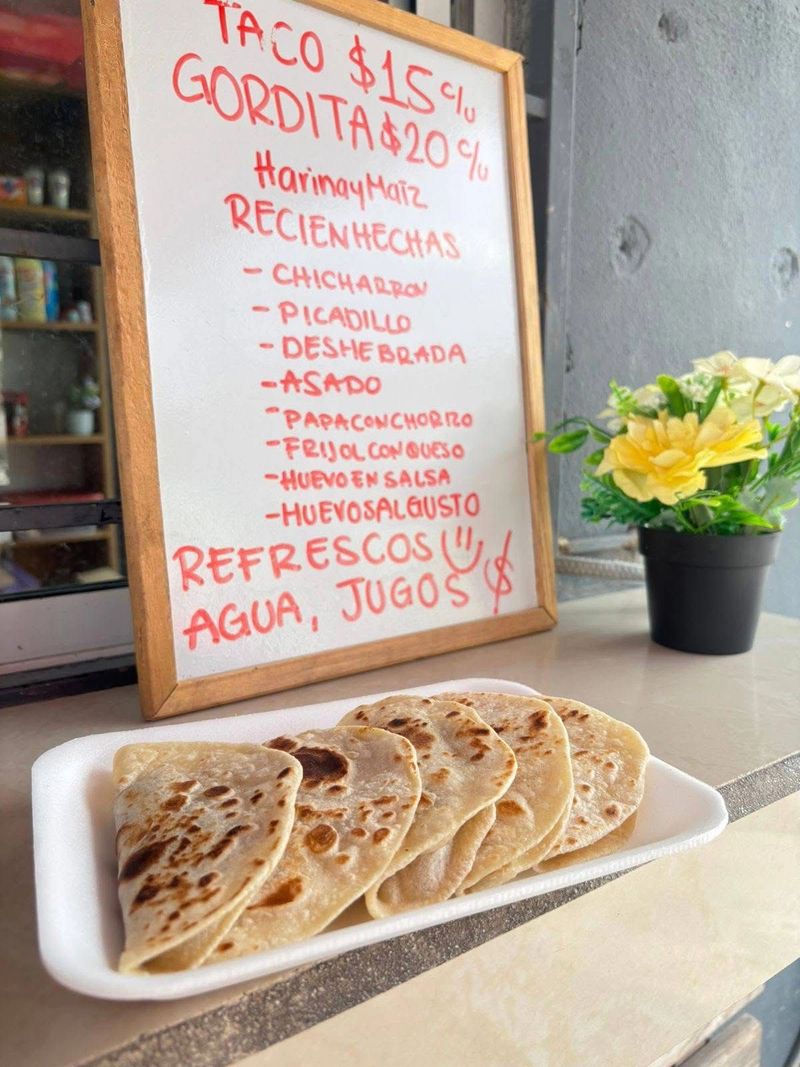 TACO $15 c/u
GORDITA $20 c/u
Harina y Maíz
RECIEN HECHAS
- CHICHARRON
- PICADILLO
- DESHEBRADA
- ASADO
- PAPA CON CHORIZO
- FRIJOL CON QUESO
- HUEVO EN SALSA
- HUEVOS AL GUSTO
REFRESCOS
AGUA, JUGOS $